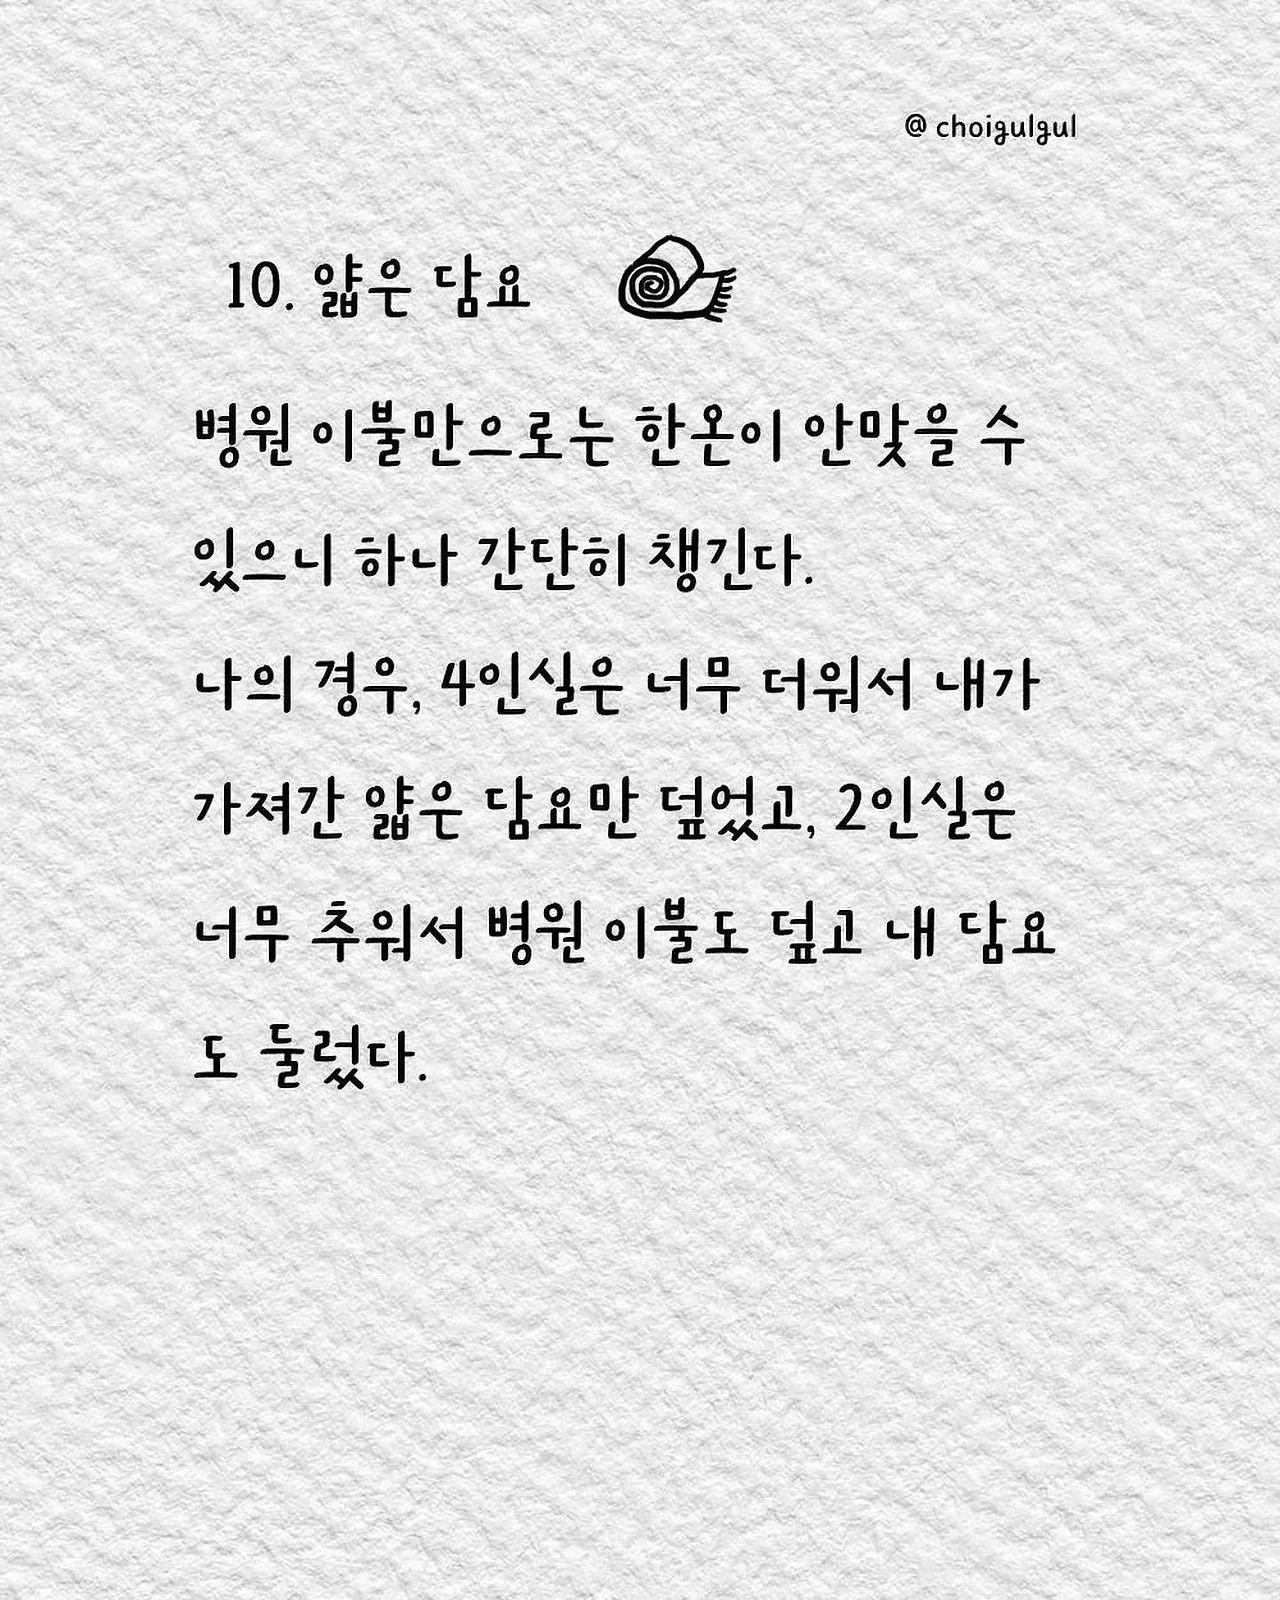 @ choigulgul
10. 얇은 담요
병원 이불만으로는 한온이 안맞을 수
있으니 하나 간단히 챙긴다.
나의 경우, 4인실은 너무 더워서 내가
가져간 얇은 담요만 덮었고, 2인실은
너무 추워서 병원 이불도 덮고 내 담요
도 둘렀다.